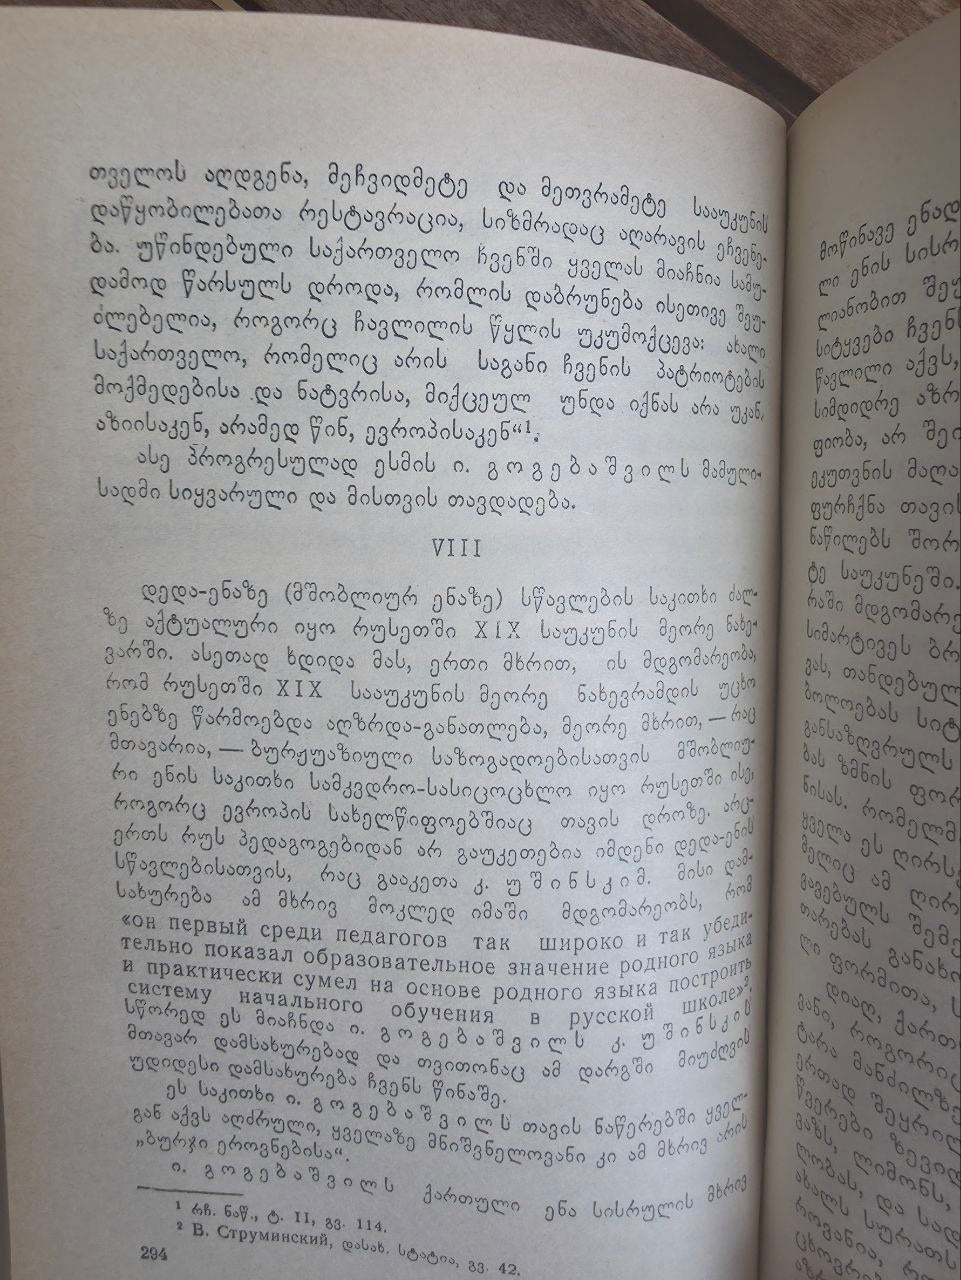 თველოს აღდგენა, მეჩვიდმეტე და მეთვრამეტე სააუკუნის
დაწყობილებათა რესტავრაცია, სიზმრადაც აღარავის ეჩვენე-
ბა. უწინდებული საქართველო ჩვენში ყველას მიაჩნია სამუ-
დამოდ წარსულს დროდა, რომლის დაბრუნება ისეთივე შეუ-
ძლებელია, როგორც ჩავლილის წყლის უკუმოქცევა: ახალი
საქართველო, რომელიც არის საგანი ჩვენის პატრიოტების
მოქმედებისა და ნატვრისა, მიქცეულ უნდა იქნას არა უკან,
აზიისაკენ, არამედ წინ, ევროპისაკენ“¹.
ასე პროგრესულად ესმის ი. გოგებაშვილს მამული-
სადმი სიყვარული და მისთვის თავდადება.
VIII
დედა-ენაზე (მშობლიურ ენაზე) სწავლების საკითხი ძალ-
ზე აქტუალური იყო რუსეთში XIX საუკუნის მეორე ნახე-
ვარში. ასეთად ხდიდა მას, ერთი მხრით, ის მდგომარეობა,
რომ რუსეთში XIX სააუკუნის მეორე ნახევრამდის უცხო
ენებზე წარმოებდა აღზრდა-განათლება, მეორე მხრით, — რაც
მთავარია, — ბურჟუაზიული საზოგადოებისათვის მშობლიუ-
რი ენის საკითხი სამკვდრო-სასიცოცხლო იყო რუსეთში ისე,
როგორც ევროპის სახელწიფოებშიაც თავის დროზე. არც-
ერთს რუს პედაგოგებიდან არ გაუკეთებია იმდენი დედა-ენის
სწავლებისათვის, რაც გააკეთა კ. უშინსკიმ. მისი დამ-
სახურება ამ მხრივ მოკლედ იმაში მდგომარეობს, რომ
«он первый среди педагогов так широко и так убеди-
тельно показал образовательное значение родного языка
и практически сумел на основе родного языка построить
систему начального обучения в русской школе»².
სწორედ ეს მიაჩნდა ი. გოგებაშვილს კ. უშინსკის
მთავარ დამსახურებად და თვითონაც ამ დარგში მიუძღვის
უდიდესი დამსახურება ჩვენს წინაშე.
ეს საკითხი ი. გოგებაშვილს თავის ნაწერებში ყველ-
გან აქვს აღძრული, ყველაზე მნიშვნელოვანი კი ამ მხრივ არის
„ბურჯი ეროვნებისა“.
ი. გოგებაშვილს ქართული ენა სისრულის მხრივ
¹ რჩ. ნაწ., ტ. II, გვ. 114.
² В. Струминский, დასახ. სტატია, გვ. 42.
294
მოწინავე ენად
ლი ენის სისრ
ლიანობით შეუ
სიტყვები ჩვენს
წავლილი აქვს,
სიმდიდრე აზრ
ფიობა, არ შეი
ეკუთვნის მაღა
ფურჩქნა თავის
ნაწილებს შორ
ტე საუკუნეში.
რაში მდგომარე
სიმარტივეს ბრ
ვას, თანდებულ
ბოლოებას სიტ
განსაზღვრულს
ბას ზმნის ფორ
ნისას. რომელმ
ყველა ეს ღირს
მელიც ამ ღირ
გავებულს შემე
თარებას განახ
ლი ფორმითა, ს
დიაღ, ქართ
ვანი, როგორიც
ტარა მანძილზე
ერთად შეყრილ
წვერები ზევიდ
ვაზს, ლიმონს,
ლობას, და სად
ახალს სურათს
როვანია, რ
ცხოვრე